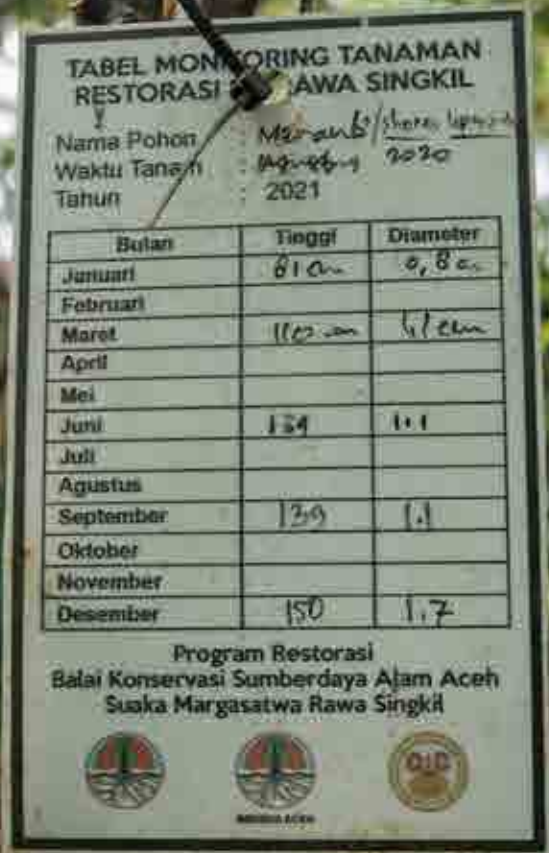 TABEL MONITORING TANAMAN
RESTORASI RAWA SINGKIL
Nama Pohon : Meranti /shorea
Waktu Tanam : Agustus 2020
Tahun : 2021
Bulan Tinggi Diameter
Januari 81 cm 0,8 cm
Februari
Maret 110 cm 1,1 cm
April
Mei
Juni 134 1.1
Juli
Agustus
September 139 1.1
Oktober
November
Desember 150 1.7
Program Restorasi
Balai Konservasi Sumberdaya Alam Aceh
Suaka Margasatwa Rawa Singkil
BKSDA ACEH
OIC